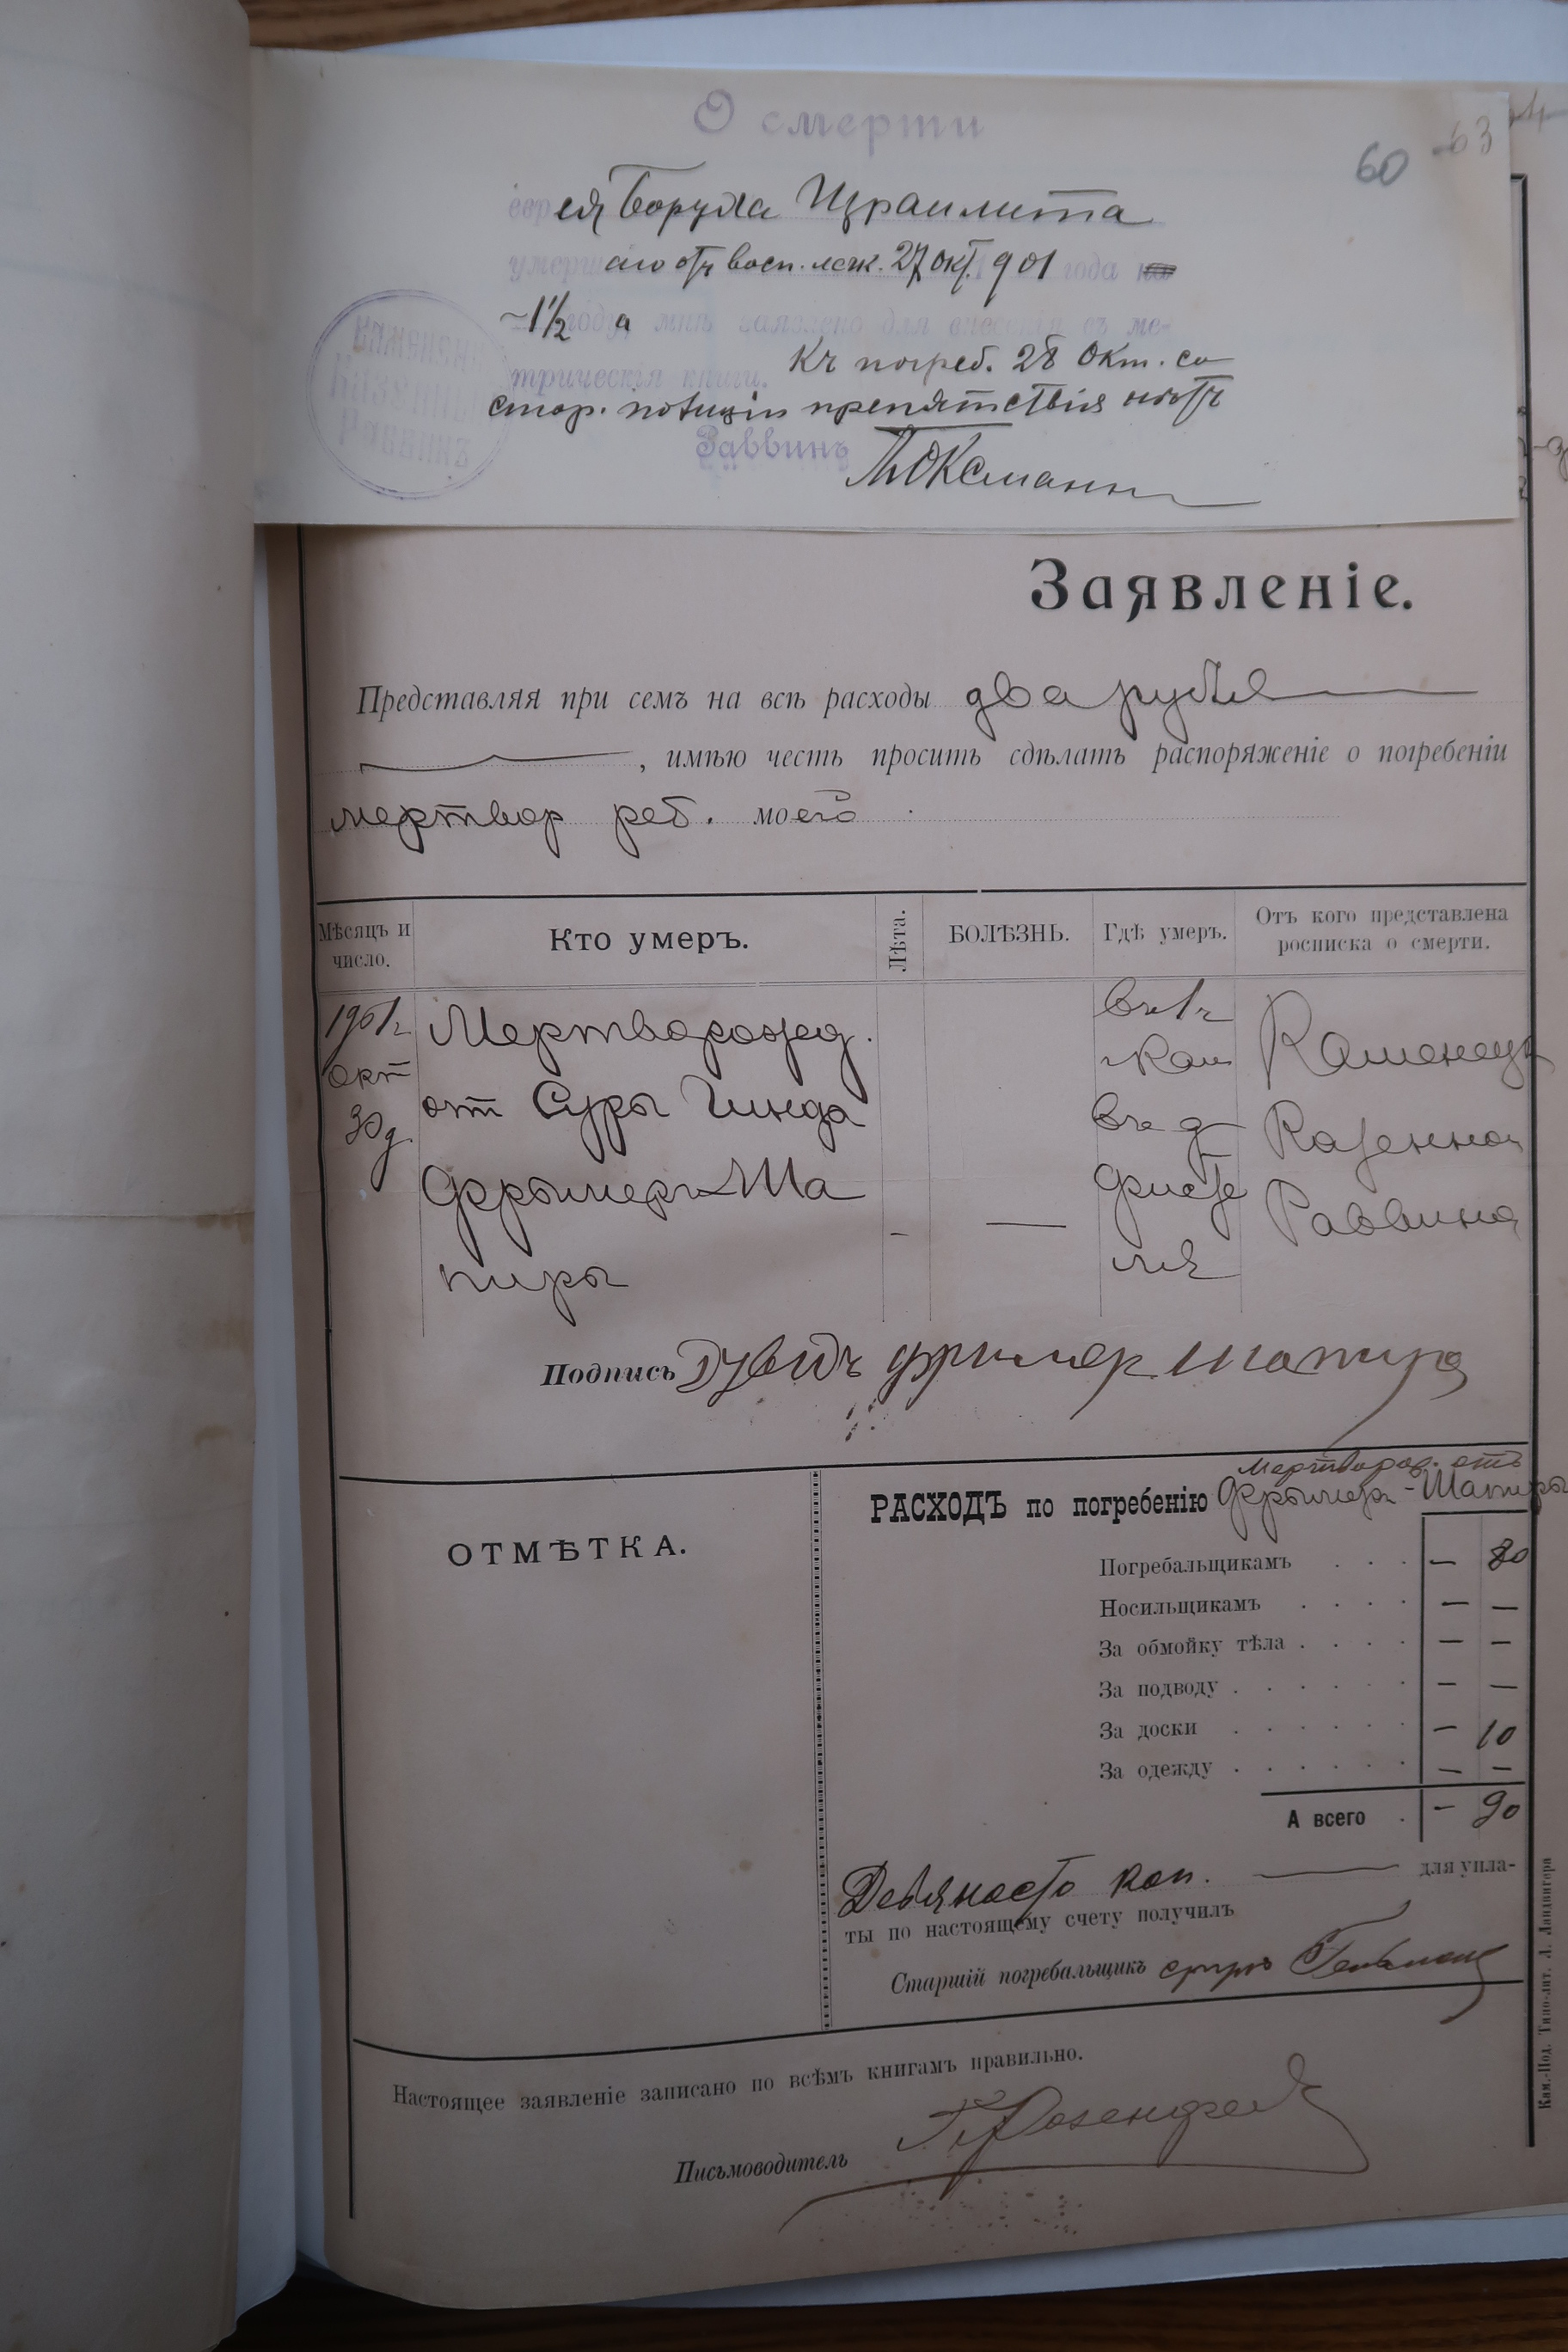 О смерти
60 63
еврея Боруха Израилита
умершаго отъ восп. легк. 27 окт. 901 года
~ 1½ года мнѣ заявлено для внесенія въ ме-
трическія книги. Къ погреб. 28 Окт. со
стор. полиціи препятствія нѣтъ
Раввинъ
Каменецъ
Казенный
Раввинъ
Заявленіе.
Представляя при семъ на всѣ расходы два рубля
, имѣю честь просить сдѣлать распоряженіе о погребеніи
мертвор реб. моего
Мѣсяцъ и число. Кто умеръ. Лѣта. БОЛѢЗНЬ. Гдѣ умеръ. Отъ кого представлена росписка о смерти.
1901г Мертворожд. въ г. Каменецк
окт от Суры Гинда г Кам Казенная
30 д Фрымеръ-Ша въ д Раввина
пиры — —
Подпись Дувидъ фример шапира
ОТМѢТКА.
мертворож. отъ
РАСХОДЪ по погребенію Фрымеръ-Шапиры
Погребальщикамъ . . . — 80
Носильщикамъ . . . . — —
За обмойку тѣла . . . . — —
За подводу . . . . . . — —
За доски . . . . . . — 10
За одежду . . . . . . — —
А всего . — 90
Девяносто коп. для упла-
ты по настоящему счету получилъ
Старшій погребальщикъ
Настоящее заявленіе записано по всѣмъ книгамъ правильно.
Письмоводитель Розенфельд
Кам.-Под. Типо-лит. Л. Ландвигера